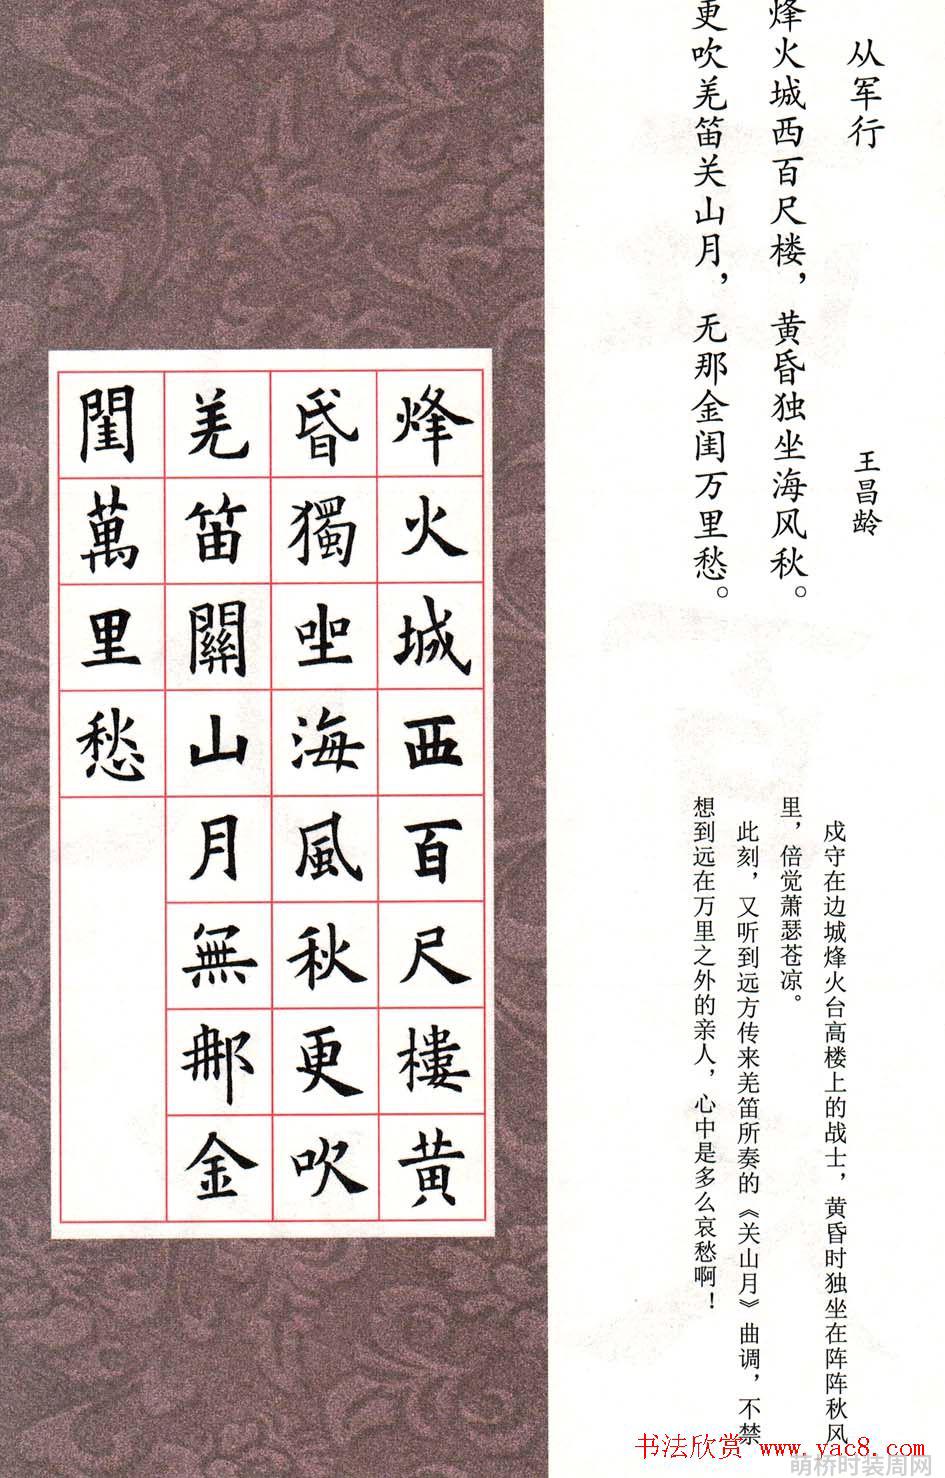 从军行
王昌龄
烽火城西百尺楼，黄昏独坐海风秋。
更吹羌笛关山月，无那金闺万里愁。
戍守在边城烽火台高楼上的战士，黄昏时独坐在阵阵秋风
里，倍觉萧瑟苍凉。
此刻，又听到远方传来羌笛所奏的《关山月》曲调，不禁
想到远在万里之外的亲人，心中是多么哀愁啊！
烽火城西百尺樓黄
昏獨坐海風秋更吹
羌笛關山月無那金
閨萬里愁
书法欣赏 www.yac8.com
萌桥时装周网